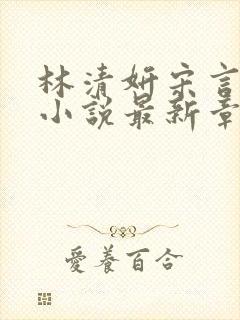 林清妍宋言
小说最新章
愛養百合